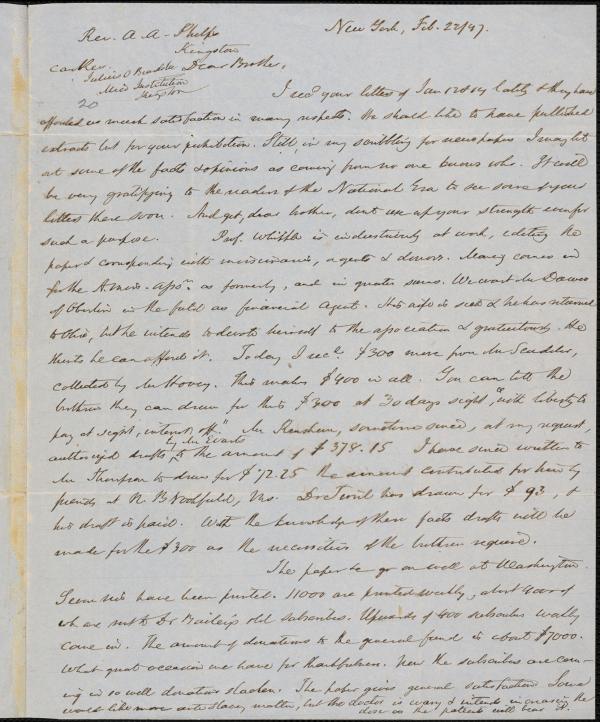 New York, Feb. 22/47.
Rev. A. A. Phelps
Kingston
care Rev.
Julius O Beardslee
Miss Institution
Kingston
20
Dear Brother,
I recd your letters of Jan & lately & they have
afforded us much satisfaction in many respects. We should like to have published
extracts but for your prohibition. Still, in my scribbling for newspapers I may let
out some of the facts & opinions as coming from no one knows who. It will
be very gratifying to the readers of the National Era to see some of your
letters there soon. And yet, dear brother, dont use up your strength even for
such a purpose. Prof. Whipple is industriously at work, editing the
paper & corresponding with missionaries, agents & donors. Money comes in
for the Amer. Assn. as formerly, and in greater sums. We want Mr Dawes
of Oberlin in the field as financial Agent. His wife is sick & he has returned
to Ohio, but he intends to devote himself to the association & gratuitously. He
thinks he can afford it. Today I recd. $300 more from Mr Scudder,
collected by Mr Hovey. This makes $400 in all. You can tell the
brethren they can draw for this $300 at 30 days sight, "with liberty to
pay at sight, interest off." Mr Renshaw, sometime since, at my request,
authorized drafts, by Mr Evarts to the amount of $378.15 I have since written to
Mr Thompson to draw for $72.25 the amount contributed for him by
friends at N. Brookfield, Ms. Dr has drawn for $93, &
his draft is paid. With the knowledge of these facts drafts will be
made for the $300 as the necessities of the brethren require.
The paper &c go on well at Washington.
Seven nos have been printed. 11000 are printed weekly, about 4000 of
wh are sent to Dr Bailey's old subscribers. Upwards of 400 subscribers weekly
come in. The amount of donations to the general fund is about $7000.
What great occasion we have for thankfulness. Now the subscribers are com-
ing in so well donations slacken. The paper gives general satisfaction. Some
would like more anti slavery matter, but the doctor is wary & intends increasing the
dose as the patients will bear it.